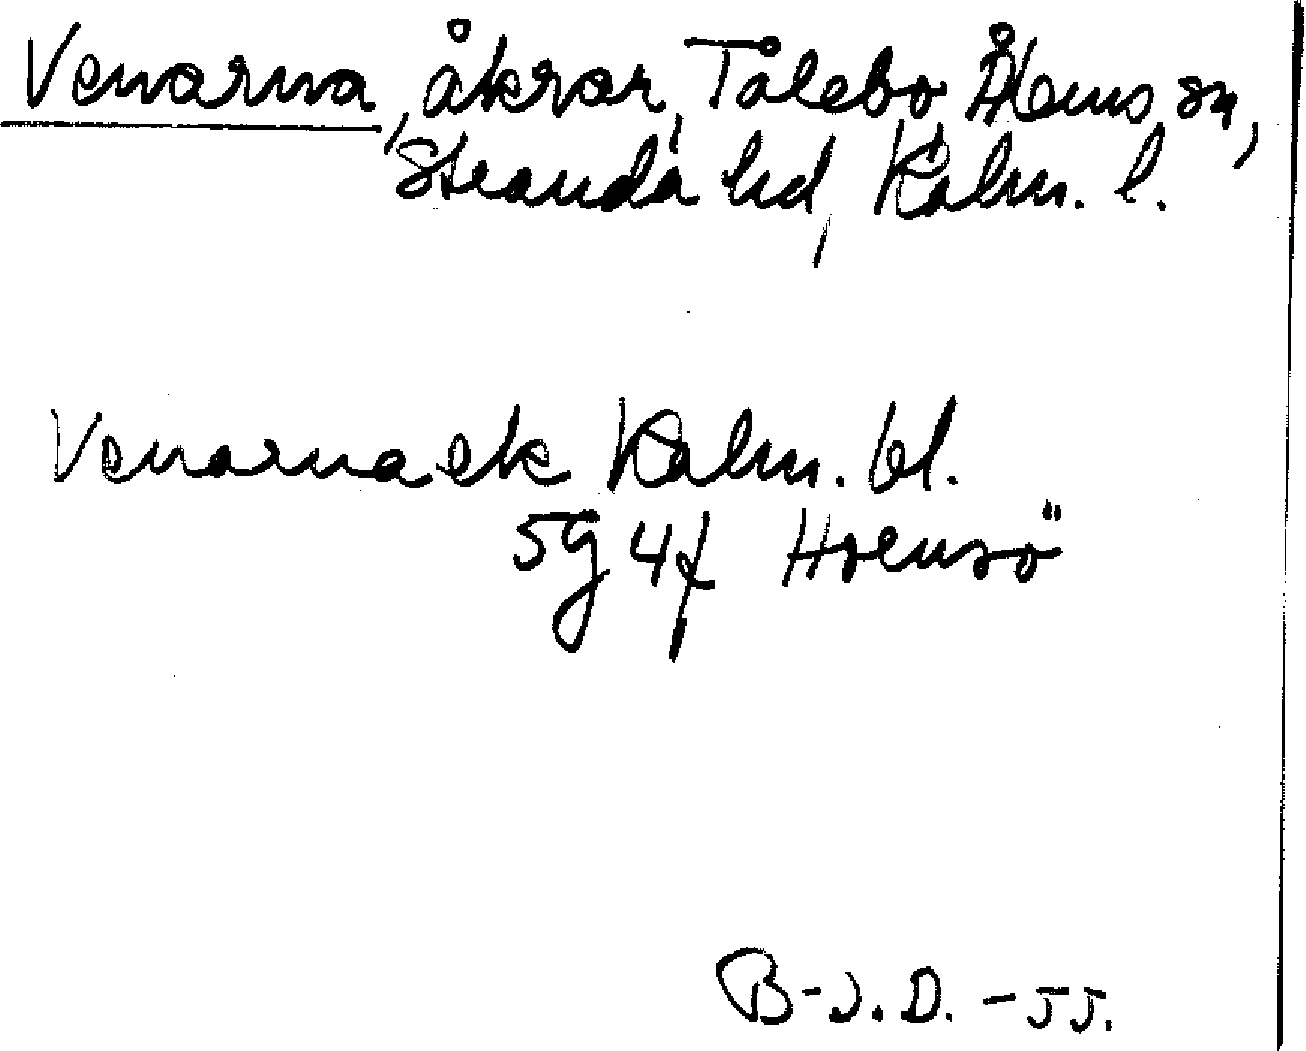 Venarna, åkrar, Tålebo, Ålems sn,
Stranda hd, Kalm. l.
Venarna ek Kalm. bl.
5g 4f Hornsö
B-J. D. - 55.